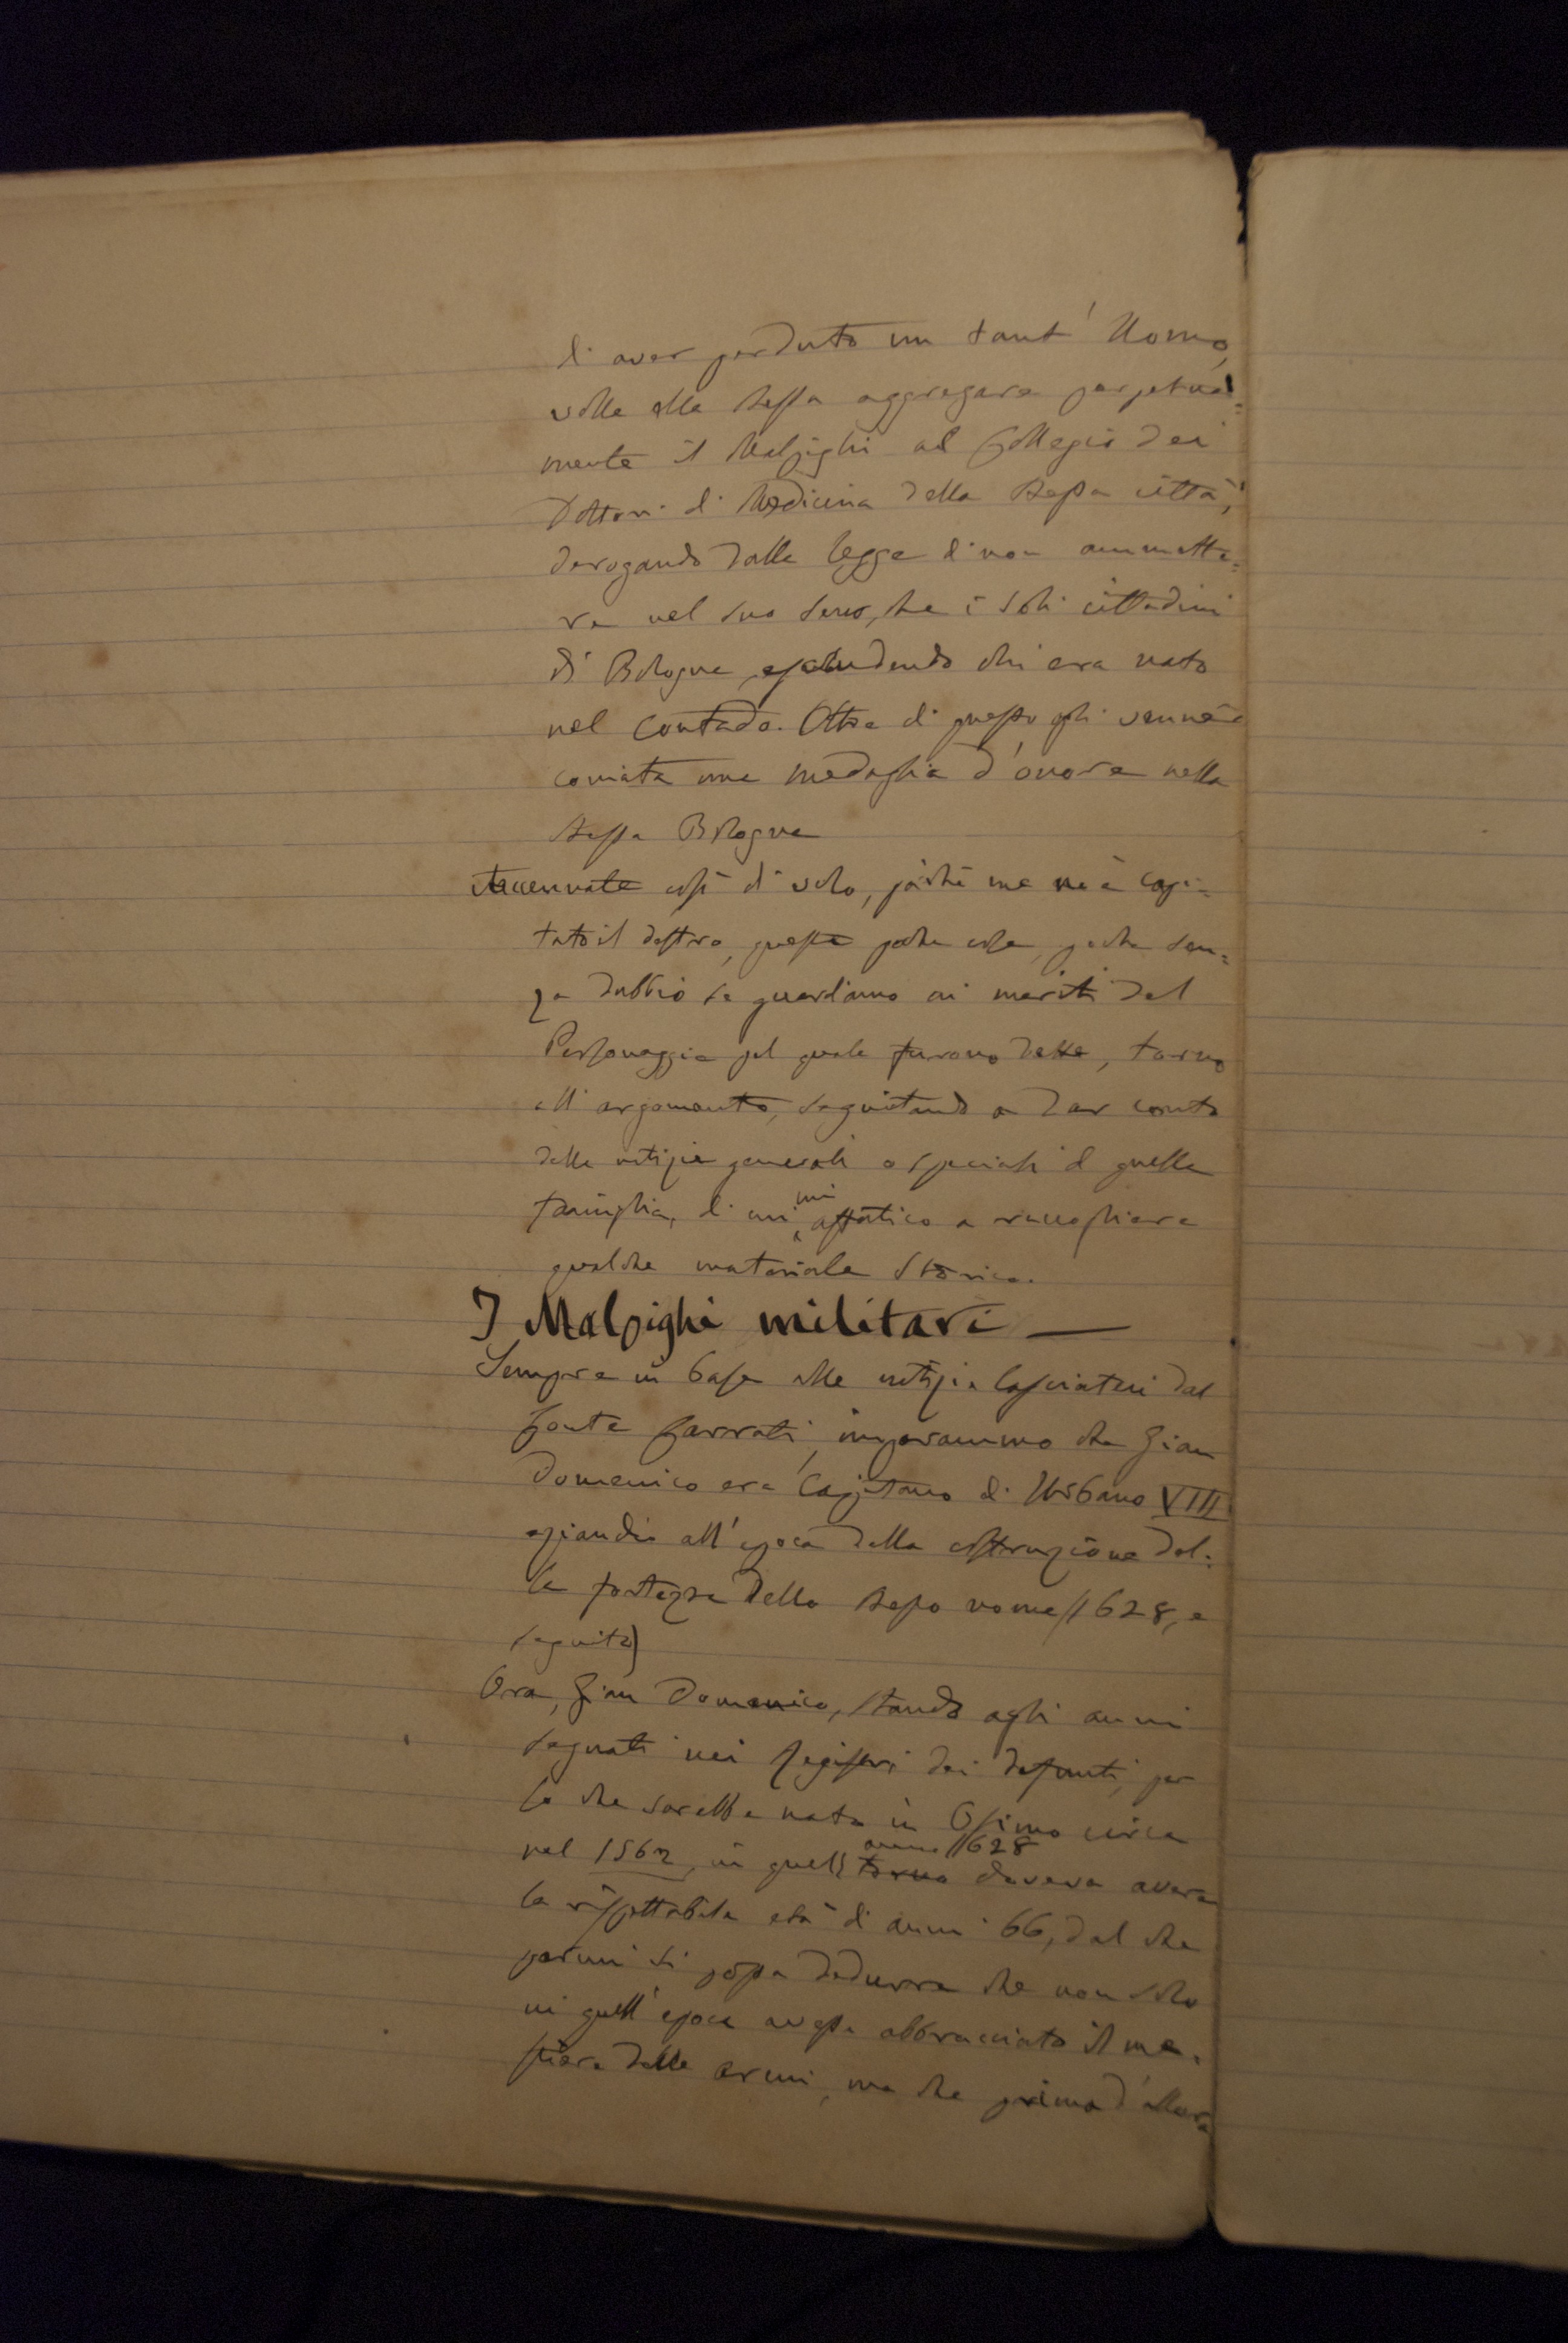 di aver perduto un tant' Uomo,
volle ella stessa aggregare perpetua=
mente il Malpighi al Collegio dei
Dottori di Medicina della stessa città,
derogando dalla legge di non ammette=
re nel suo seno, che i soli cittadini
di Bologna, escludendo chi era nato
nel Contado. Oltre di questo gli venne
coniata una medaglia d'onore nella
stessa Bologna
Accennate così di volo, poichè me ne è capi=
tato il destro, queste poche cose, poche sen=
za dubbio se guardiamo ai meriti del
Personaggio pel quale furono dette, torno
all'argomento, seguitando a dar conto
delle notizie generali e speciali di quella
famiglia, di cui mi affatico a raccogliere
qualche materiale storico.
I Malpighi militari —
Sempre in base alle notizie lasciateci dal
Conte imparammo che Gian
Domenico era Capitano di Urbano VIII
eziandio all'epoca della costruzione del=
la fortezza dello stesso nome (1628, e
seguito)
Ora, Gian Domenico, stando agli anni
segnati nei Registri dei defunti, per
lo che sarebbe nato in Osimo circa
nel 1562, in quell' anno 1628 doveva avere
la rispettabile età di anni 66, dal che
parmi si possa dedurre che non solo
in quell'epoca avesse abbracciato il me=
stiere delle armi, ma che prima d'allora